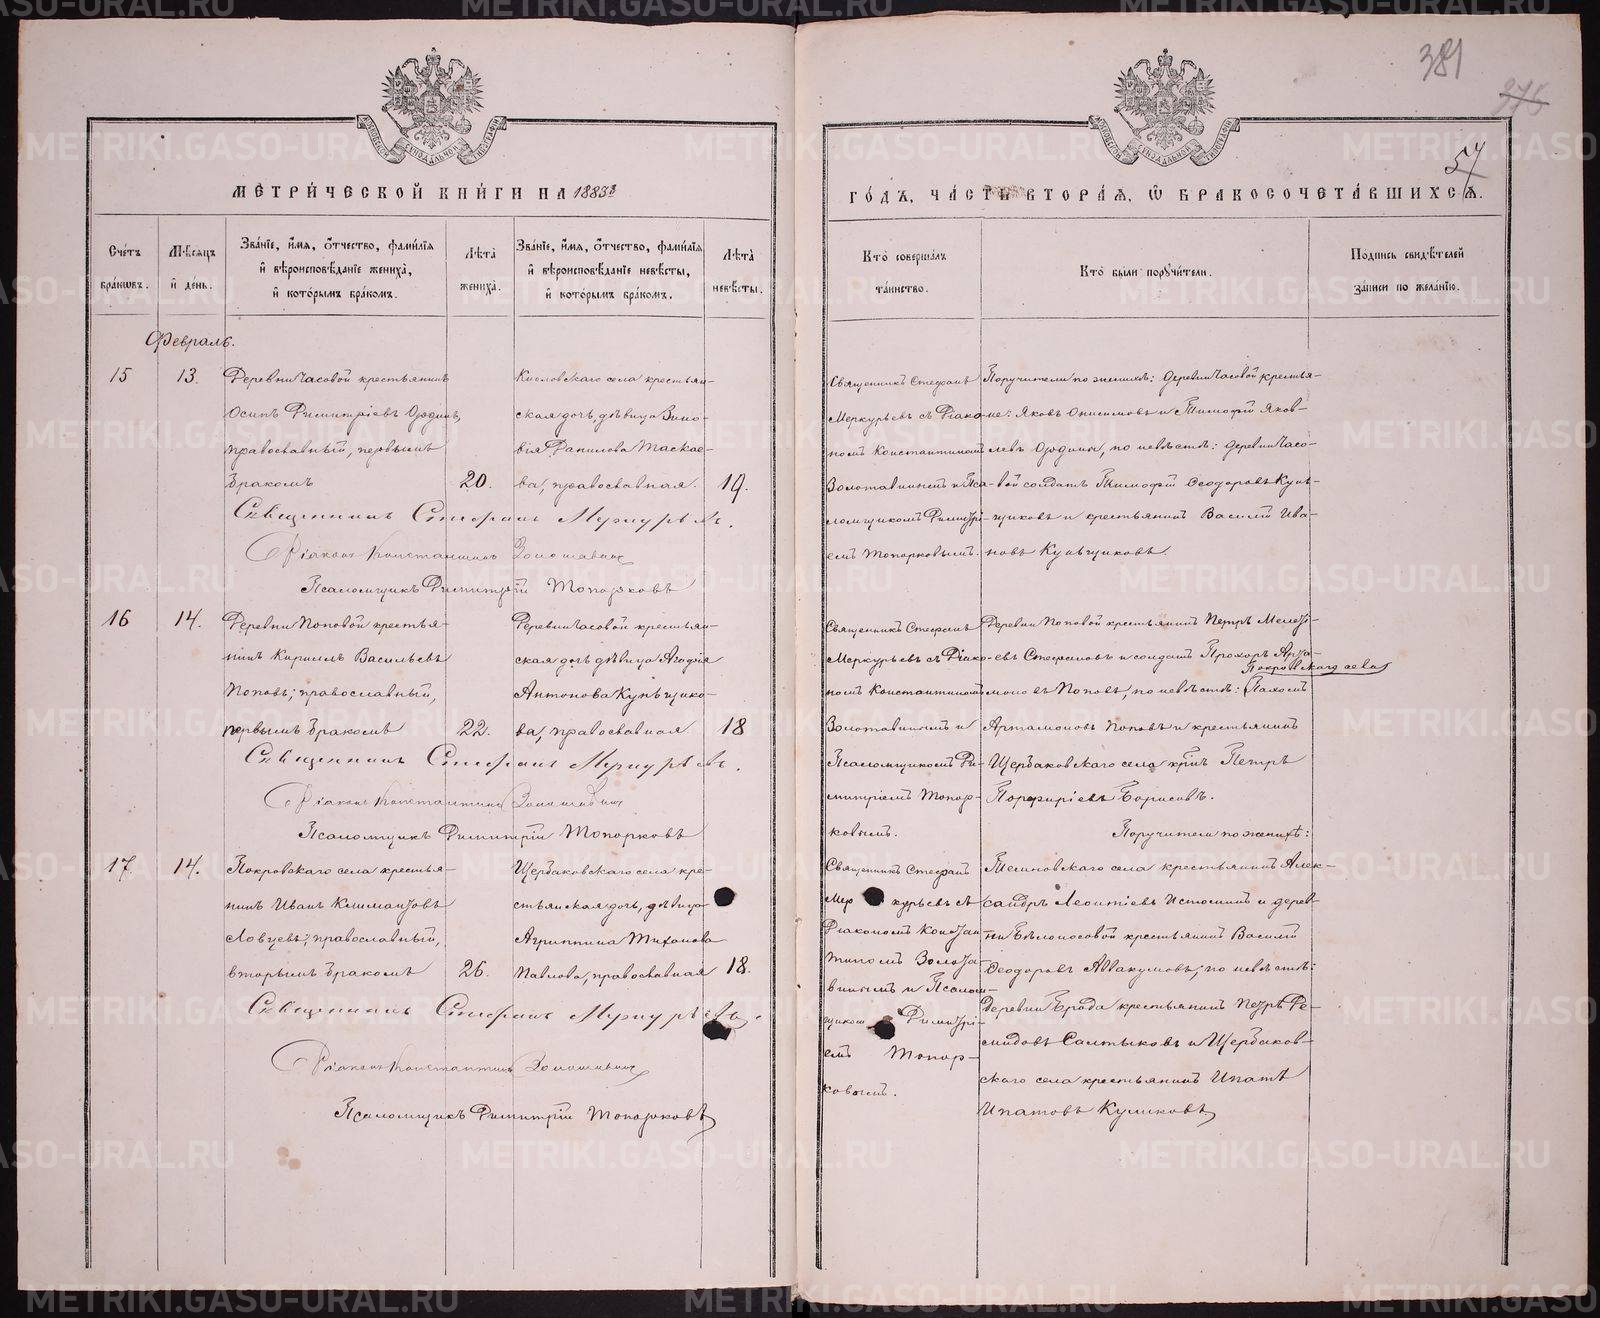 381
375
54
МЕТРИ́ЧЕСКОЙ КНИ́ГИ НА 1883й
ГО́ДЪ, ЧА́СТЬ ВТОРА́Ѧ, Ѽ БРАКОСОЧЕТА́ВШИХСѦ.
Сче́тъ бра́кѡвъ.
Мѣ́сѧцъ и҆ де́нь.
Зва́нїе, и҆́мѧ, ѻ҆́тчество, фами́лїѧ
и҆ вѣроисповѣ́данїе жениха̀,
и҆ кото́рымъ бра́комъ.
Лѣ́та жениха̀.
Зва́нїе, и҆́мѧ, ѻ҆́тчество, фами́лїѧ
и҆ вѣроисповѣ́данїе невѣ́сты,
и҆ кото́рымъ бра́комъ.
Лѣ́та невѣ́сты.
Кто̀ соверша́лъ та́инство.
Кто̀ бы́ли поручи́тели.
По́дпись свидѣ́телей
за́писи по жела́нїю.
Февраль.
15
13.
Деревни Часовой крестьянинъ
Осипъ Димитріевъ
православный, первымъ
бракомъ
20.
Кисловскаго села крестьян-
ская дочь, дѣвица Зино-
вія Данилова Таскае-
ва, православная.
19.
Священникъ Стефанъ
Меркурьевъ съ Діако-
номъ Константиномъ
Золотавинымъ и Пса-
ломщикомъ Димитрі-
емъ Топорковымъ.
Поручители по женихѣ: деревни Часовой крестья-
не: Яковъ Онисимовъ и Тимофей Яков-
левъ по невѣстѣ: деревни Часо-
вой солдатъ Тимофей Ѳеодоровъ Купь-
щиковъ и крестьянинъ Василій Ива-
новъ Купьщиковъ.
Священникъ Стефанъ Меркурьевъ.
Діаконъ Константинъ Золотавинъ
Псаломщикъ Димитрій Топорковъ
16
14.
Деревни Поповой крестья-
нинъ Кириллъ Васильевъ
Поповъ, православный,
первымъ бракомъ
22.
Деревни Часовой крестьян-
ская дочь дѣвица Агафія
Антонова Купьщико-
ва, православная
18
Священникъ Стефанъ
Меркурьевъ съ Діако-
номъ Константиномъ
Золотавинымъ и
Псаломщикомъ Ди-
митріемъ Топор-
ковымъ.
Деревни Поповой крестьянинъ Петръ
евъ Стефановъ и солдатъ Прохоръ Арта-
Покровскаго села
моновъ Поповъ, по невѣстѣ: Пахомъ
Артамоновъ Поповъ и крестьянинъ
Щербаковскаго села Петръ
Порфиріевъ Борисовъ.
Священникъ Стефанъ Меркурьевъ.
Діаконъ Константинъ Золотавинъ
Псаломщикъ Димитрій Топорковъ
Поручители по женихѣ:
17.
14.
Покровскаго села крестья-
нинъ Иванъ Климантовъ
Ловцевъ, православный,
вторымъ бракомъ
26.
Щербаковскаго села кре-
стьянская дочь, дѣвица
Агриппина Тихонова
Павлова, православная
18.
Священникъ Стефанъ
Меркурьевъ съ
Діакономъ Констан-
тиномъ Золота-
винымъ и Псалом-
щикомъ Димитрі-
емъ Топор-
ковымъ.
Теминовскаго села крестьянинъ Алек-
сандръ Леонтіевъ Истоминъ и дерев-
ни Бѣлоносовой крестьянинъ Василій
Ѳеодоровъ Аввакумовъ; по невѣстѣ:
Деревни Брода крестьянинъ Петръ Де-
мидовъ Салтыковъ и Щербаков-
скаго села крестьянинъ Ипатъ
Ипатовъ Куликовъ
Священникъ Стефанъ Меркурьевъ.
Діаконъ Константинъ Золотавинъ
Псаломщикъ Димитрій Топорковъ
METRIKI.GASO-URAL.RU